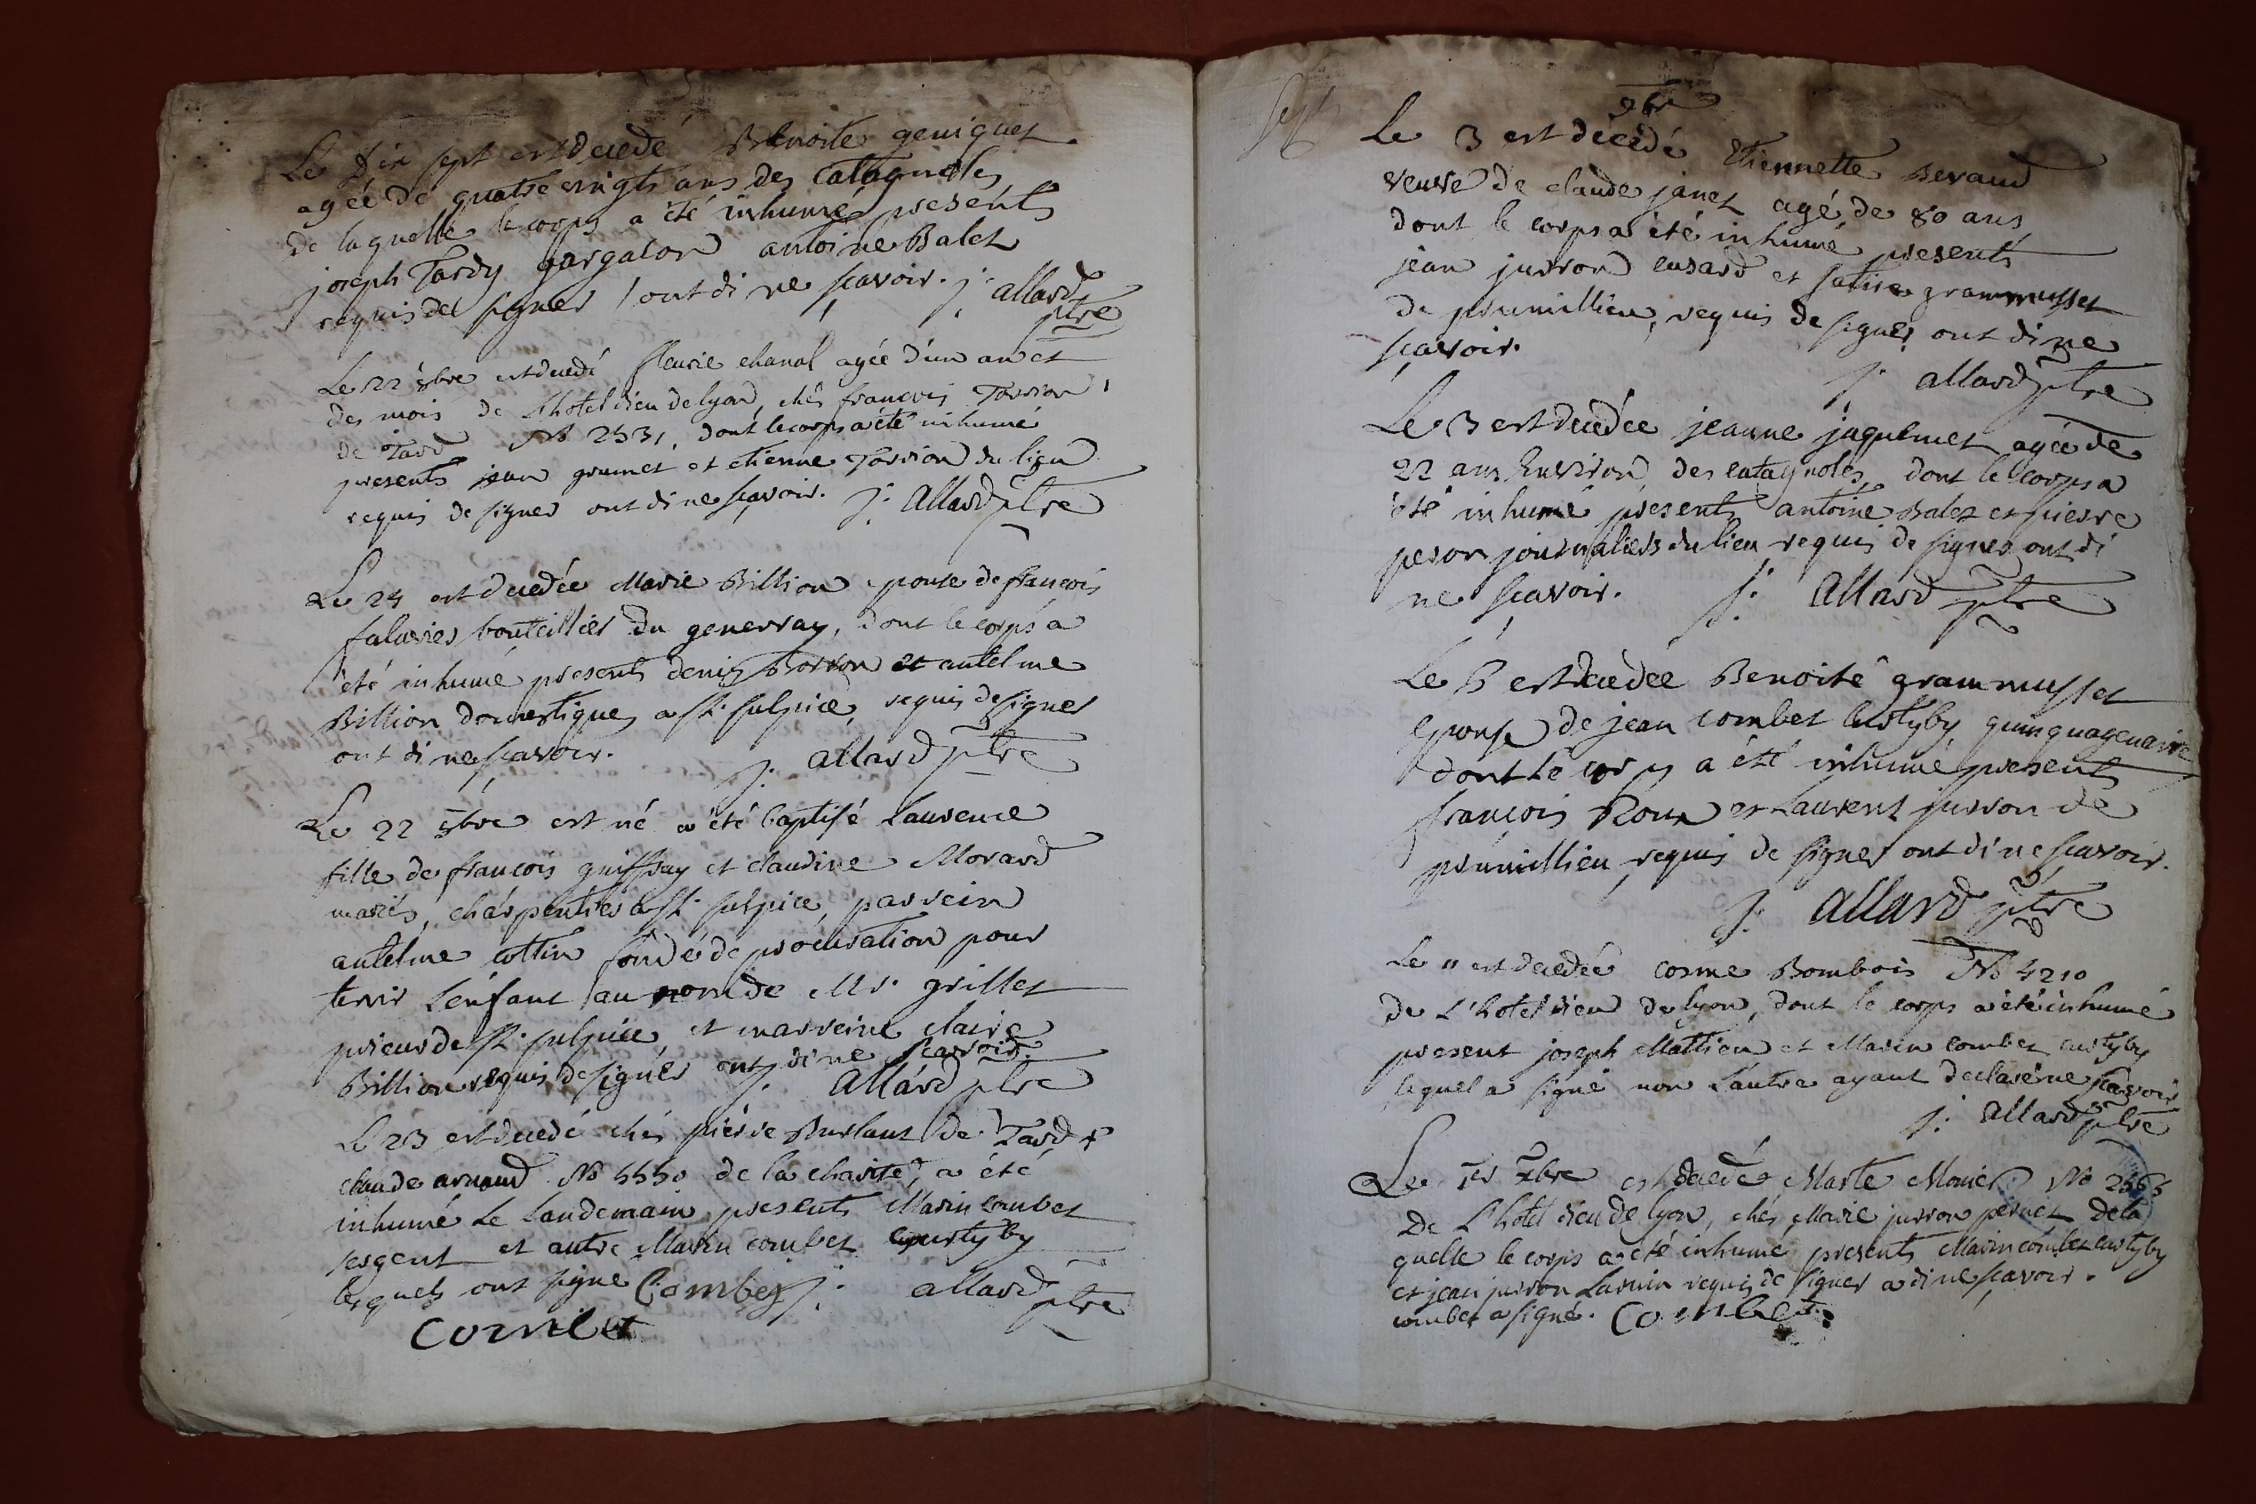 Le dix sept est decedé Benoite geniquet
agée de quatre vingts ans des Catagnoles
de laquelle le corps a été inhumé presents
joseph Tardy gargalon antoine Balet
requis de signer ont di ne scavoir. j: allard
ptre
Le 22 8bre est decedé fleurie chanal agée d'un an et
des mois de L'hotel dieu de lyon, chés françois Torrion
de Tard No 2531, dont le corps a été inhumé
presents jean grumet et etienne Torrion du lieu
requis de signer ont di ne scavoir. j: allard ptre
Le 24 est decedée Marie Billion epouse de françois
falavier bouteillier du genevray, dont le corps a
été inhumé presents denis Borron et antelme
Billion domestiques a st. sulpice, requis de signer
ont di ne scavoir. j: allard ptre
Le 22 8bre est né a été baptisé Laurence
fille de françois guiffray et claudine Morard
mariés, charpentier a st. sulpice, parrein
antelme cottin fondé de procuration pour
tenir L'enfant au nom de Mr. grillet
prieur de st. sulpice, et marreine claire
Billion requis de signer ont di ne scavoir.
j: allard ptre
Le 23 est decedé chés pierre Burlant de Tard
claude arnaud No 5550 de la charité, a été
inhumé Le Landemain presents Marin combet
sergent et autre Marin combet custyby
lesquels ont signé Combet j: allard
ptre
Combet
9bre
Le 3 est décedé Etiennette Beraud
veuve de claude janet agé de 80 ans
dont le corps a été inhumé presents
jean jurron cusard et grammusset
de premillieu, requis de signer ont di ne
scavoir.
j: allard ptre
Le 3 est decedée jeanne jaquemet agée de
22 ans Environ des catagnoles, dont le corps a
été inhumé presents antoine Balet et pierre
peron journaliers du lieu requis de signer ont di
ne scavoir. j: allard ptre
Le est decedée Benoite grammusset
epouse de jean combet custyby quinquagenaire
dont le corps a été inhumé presents
françois Roux et Laurent jurron de
premillieu requis de signer ont di ne scavoir.
j: allard ptre
Le 11 est decedée cosme Bombois No 4210
de L'hotel dieu de lyon, dont le corps a été inhumé
present joseph Mattieu et Marin combet custyby
lequel a signé non L'autre ayant declaré ne scavoir
j: allard ptre
Le 1er Xbre est decedée Marte Monier No 2563
De L'hotel dieu de lyon, chés Marie jurron pernet de la
quelle le corps a été inhumé presents Marin combet custyby
et jean jurron Larmin requis de signer a di ne scavoir.
combet a signé. Combet